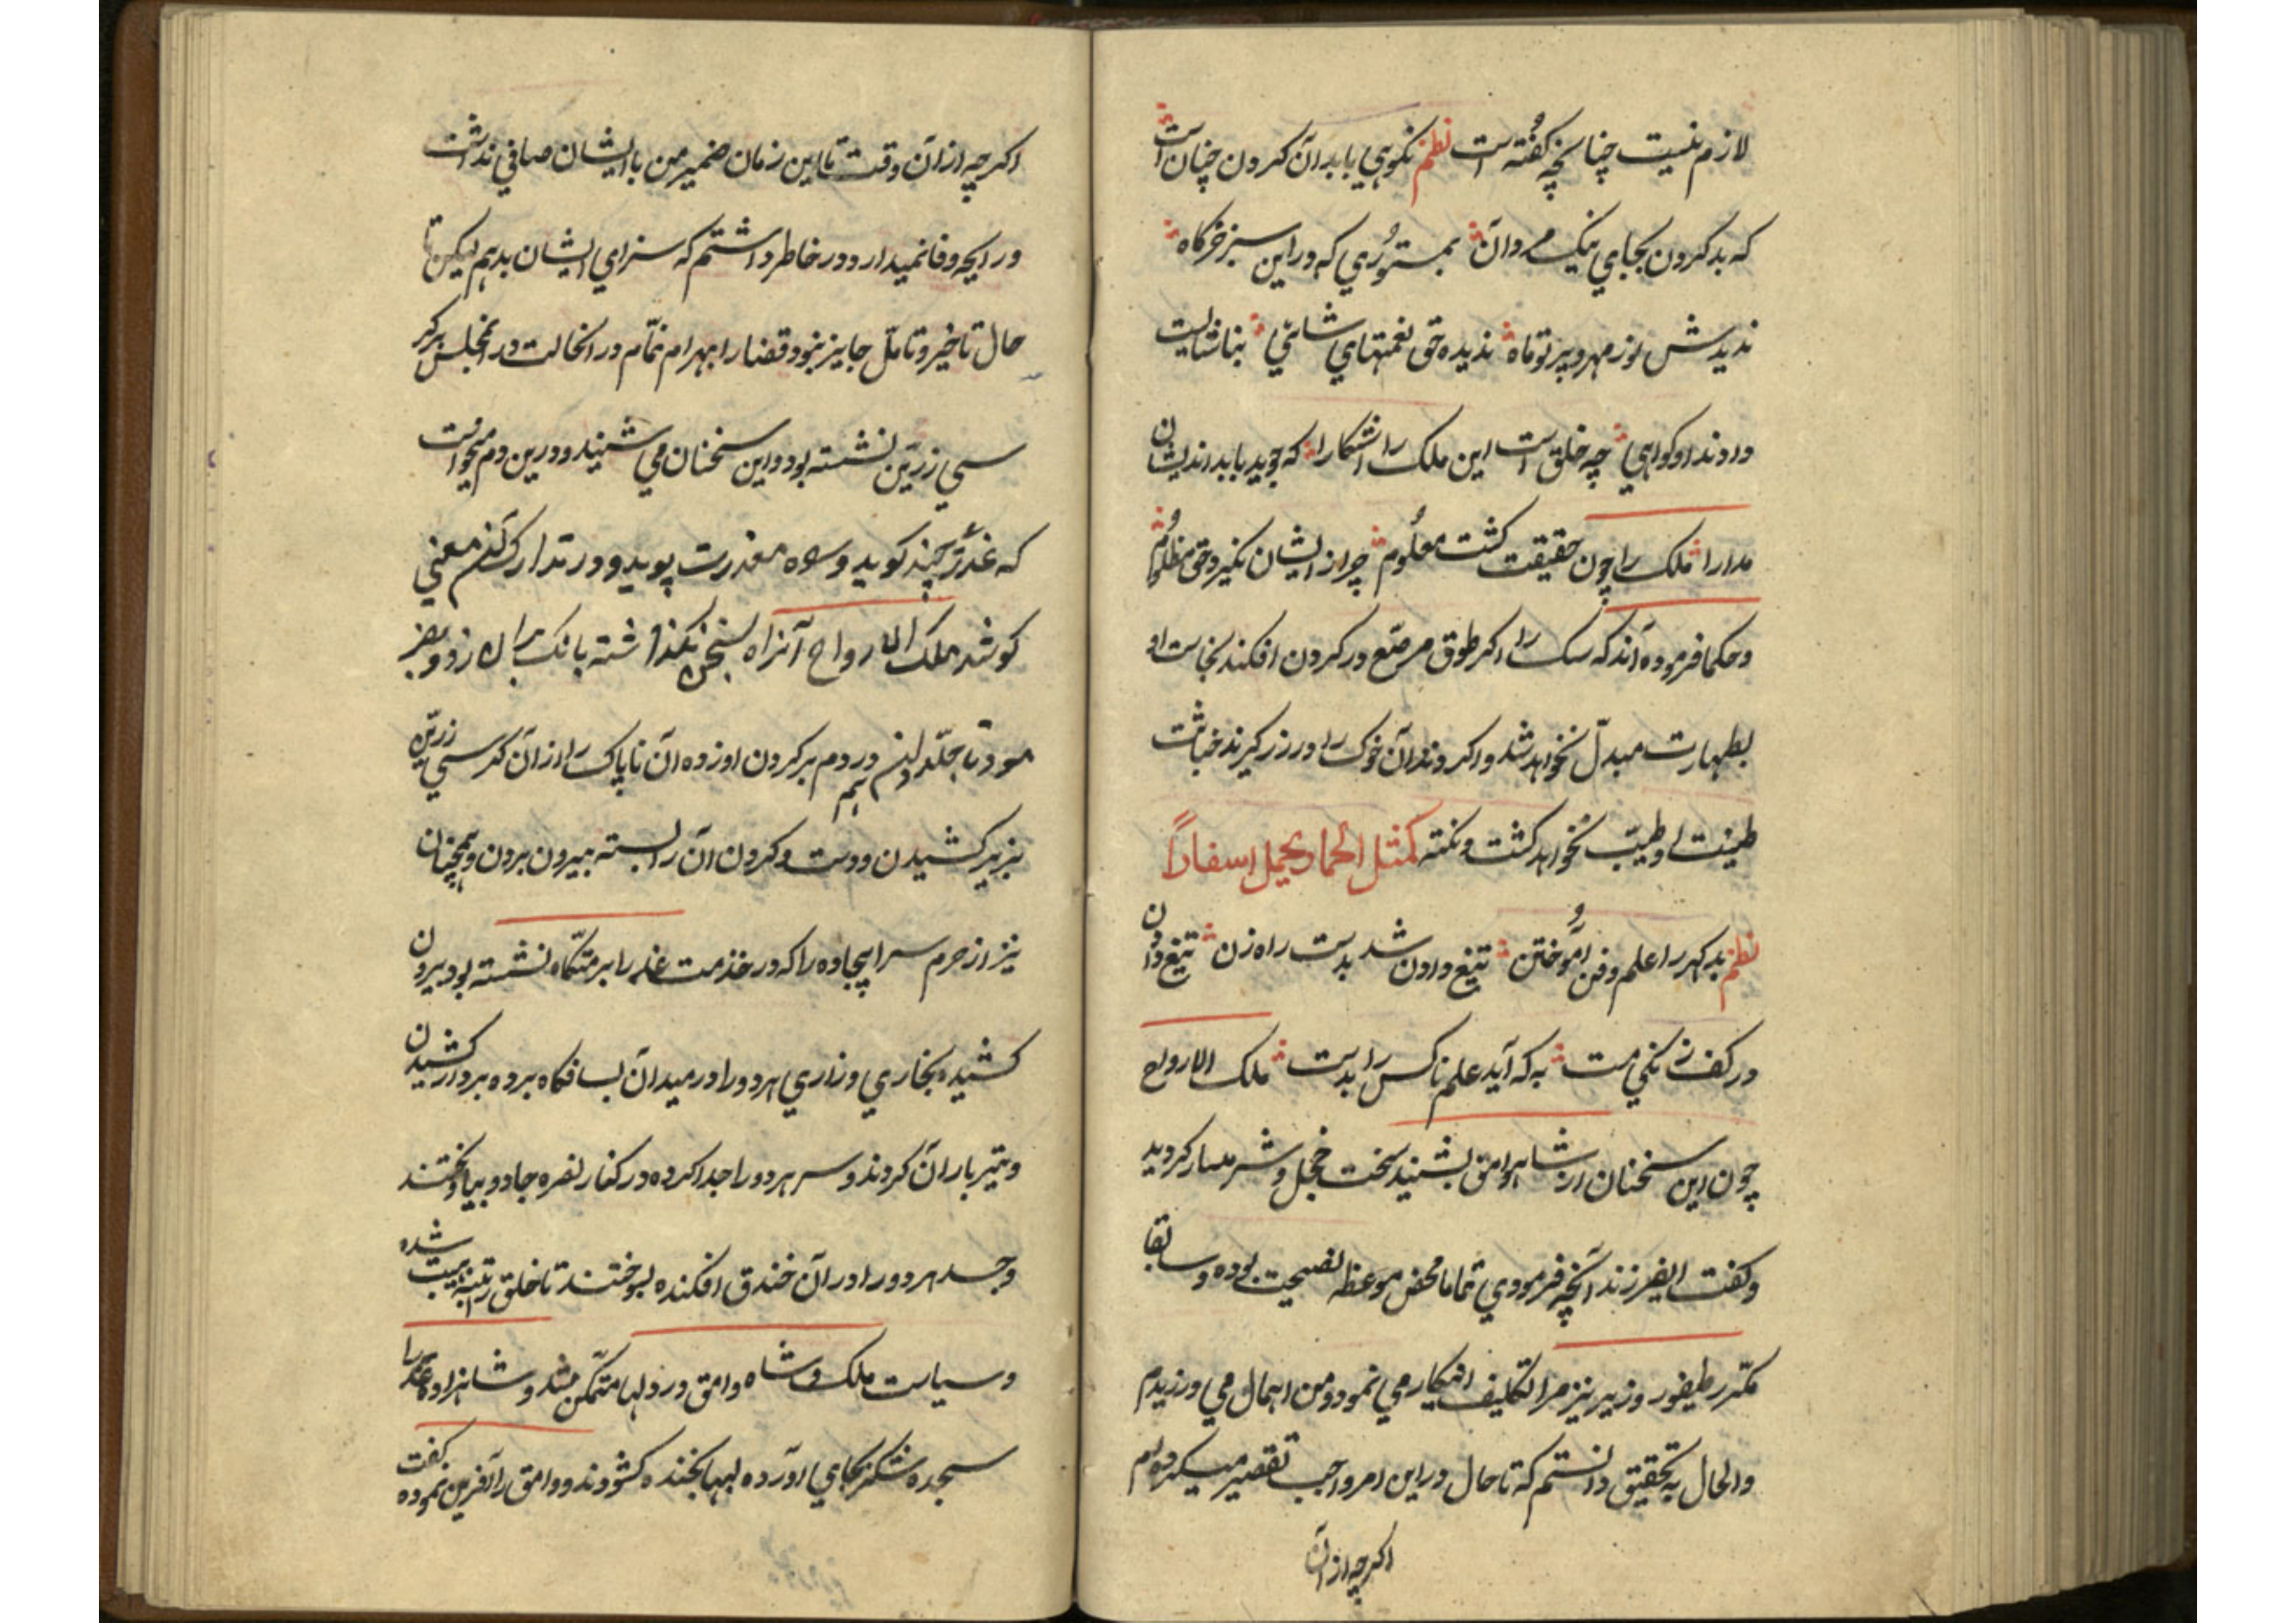 لازم نیست چنانچه گفته است نظم نکویی با بدان کردن چنان است
که بد کردن بجای نیک مردان بمستوری که در این سبز خرگاه
ندیدش نور مهر و پرتو ماه ندیده حق نعمتهای شاهی بناشایست
دادند او گواهی چه خلق است این ملک را آشکارا که جوید با بداندیشان
مدارا ملک را چون حقیقت گشت معلوم چرا از ایشان نگیرد حق مظلوم
و حکما فرموده‌اند که سک را اگر طوق مرصّع در گردن افکند نجاست او
بطهارت مبدّل نخواهد شد و اگر دندان خوک را در زر گیرند خباثت
طینت او طیّب نخواهد گشت و نکته کمثل الحمار یحمل اسفاراً
نظم بدگهر را علم و فن آموختن تیغ دادن شد بدست راه زن تیغ دادن
در کف زنگی مست به که آید علم ناکس را بدست ملک الارواح
چون این سخنان از شاه وامق بشنید سخت خجل و شرمسار گردید
و گفت ایفرزند آنچه فرمودی تماما محض موعظه نصیحت بوده و سابقا
مکرّر طیفور وزیر نیز مرا تکلیف اینکار می نمود و من اهمال می ورزیدم
والحال به تحقیق دانستم که تا حال در این امر واجب تقصیر میکردم
اگرچه از آن
اگرچه از آن وقت تا این زمان ضمیر من با ایشان صافی نداشت
و رایحه وفا نمیدارد و در خاطر داشتم که سزای ایشان بدهم لیکن تا
حال تاخیر و تامّل جایز نبود قضا را بهرام نمّام در انحالت در انمجلس بر کر
سی زرّین نشسته بود و این سخنان می شنید و درین دم میخواست
که عذری چند گوید و معذرت پوید و در تدارک معنی
کوشد ملک الارواح آنرا سخن نگذاشته بانک بر زد و بفر
مود تا جلّادان در دم بر گردن او زده آن ناپاک را از آن کرسی زرّین
بزیر کشیدن و دست و گردن آن را بسته بیرون بردن و همچنان
نیز از حرم سرا پیجاده را که در خدمت عذرا بر متکّاه نشسته بود بیرون
کشیده بخاری و زاری هر دو را در میدان سیاستگاه برده بر دار کشیدن
و تیر باران کردند و سر هر دو را جدا کرده در کنار نصره جادو بیاویختند
و جسد هر دو را در آن خندق افکنده بسوختند تا خلق را تنبیه شده
و سیاست ملک و شاه وامق در دلها متمکّن شد و شاهزاده عذرا
سجده شکر بجای آورده لبها بخنده گشودند و وامق را آفرین نموده گفت